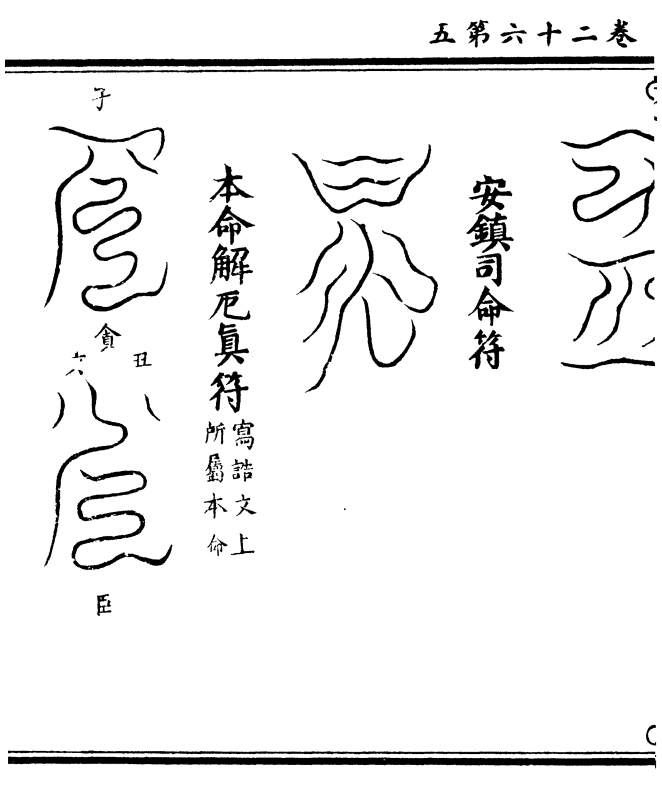 卷二十六第五
安鎮司命符
本命解厄眞符
寫誥文上
所屬本命
子
貪
丑
臣